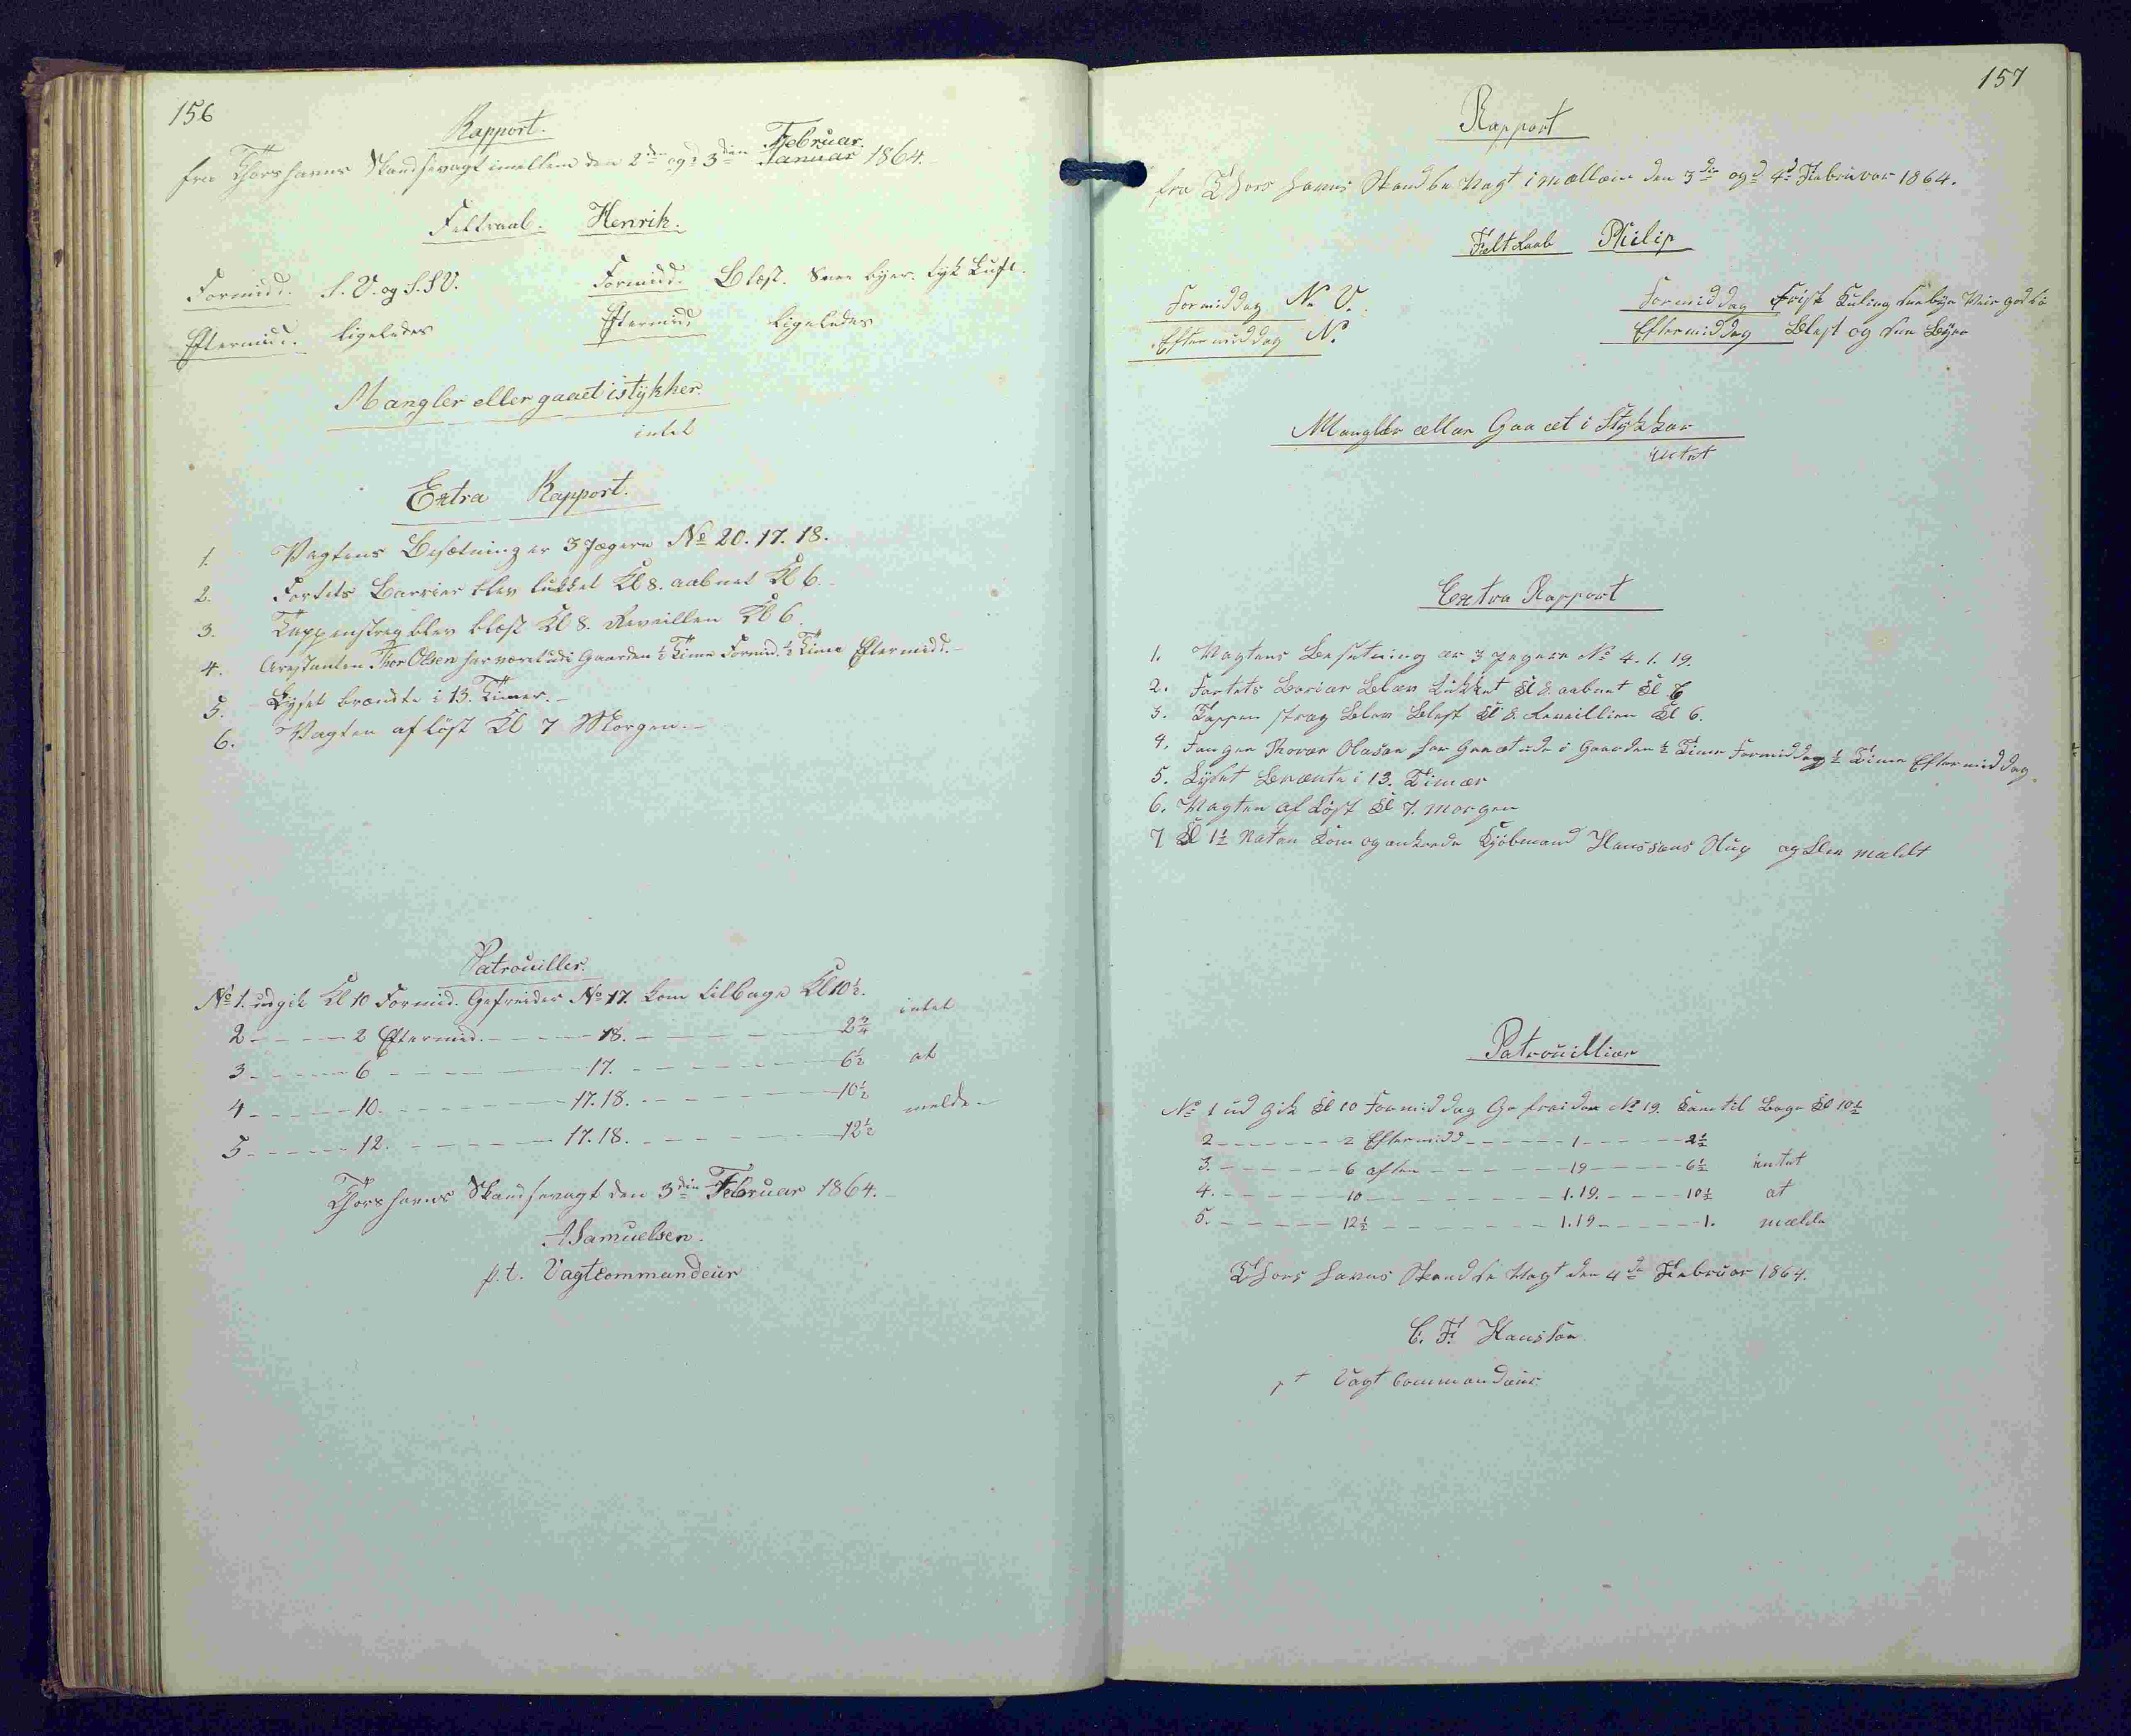 156
Rapport.
fra Thorshavns Skandsevagt imellem den 2den og 3den Februar
Januar 1864.
Feltraab. Henrik.
Formidd. S.V. og S.S.V. Formidd. Blæst. Snee byer. tyk Luft.
Eftermidd. ligeledes Eftermidd. ligeledes
Mangler eller gaaet istykker.
intet
Extra Rapport.
1. Vagtens Besætning er 3 Jægere No 20. 17. 18.
2. Fortets Barrier blev lukket Kl 8. aabnet Kl 6.
3. Tappenstreg blev blæst Kl 8. Reveillen Kl 6.
4. Arrestanten Thor Olsen har været udi Gaarden ½ Time Formid. ½ Time Eftermidd.
5. Lyset brændte i 13. Timer.
6. Vagten afløst Kl 7 Morgen.
Patrouiller.
No 1. udgik Kl 10 Formid. Gefreider No 17. kom tilbage Kl 10½.
2 - - - - 2 Eftermid. - - - - 18. - - - - 2¾ intet
3 - - - - 6 - - - - 17. - - - - 6½ at
4 - - - - 10. - - - - 17.18. - - - - 10½
5 - - - - 12. - - - - 17.18. - - - - 12½ melde
Thorshavns Skandsevagt den 3die Februar 1864.
A Samuelsen.
p.t. Vagtcommandeur
157
Rapport
fra Thors havns Skandse Vagt imællem den 3die og 4d Febrüvar 1864.
Felt Raab Philip
Formiddag N. V. Formiddag Frisk Kuling
Eftermiddag N. Eftermiddag Blest og Sne Byer
Mangler ellær Gaaet i Stykkær
intet
Extra Rapport
1. Vagtens Besetning ær 3 Jegere No 4. 1. 19.
2. Fortets Bariær Blev Lukket Kl 8. aabnet Kl 6
3. Tappen streg Blev Blest Kl 8. Reveillien Kl 6.
4. Fangen Thorær Olæsen har været ude i Gaarden ½ Time Formiddag ½ Time Eftermiddag.
5. Lyset Brænte i 13. Timær
6. Vagten af Løst Kl 7. morgen
7 Kl 1½ Naten Kom og ankrede Kjøbmand Hanssens Slup og Blev mældt
Patrouillier
No 1 ud gik Kl 10 Formiddag Gefreider No 19. Kom til Bage Kl 10½
2 - - - - 2 Eftermidd - - - - 1 - - - - 2½
3. - - - - 6 aften - - - - 19 - - - - 6½ intet
4. - - - - 10 - - - - 1.19. - - - - 10½ at
5. - - - - 12½ - - - - 1.19 - - - - 1. mælde
Thors havns Skandse Vagt den 4de Februar 1864.
C. F. Hansen
pt Vagt Commandeür